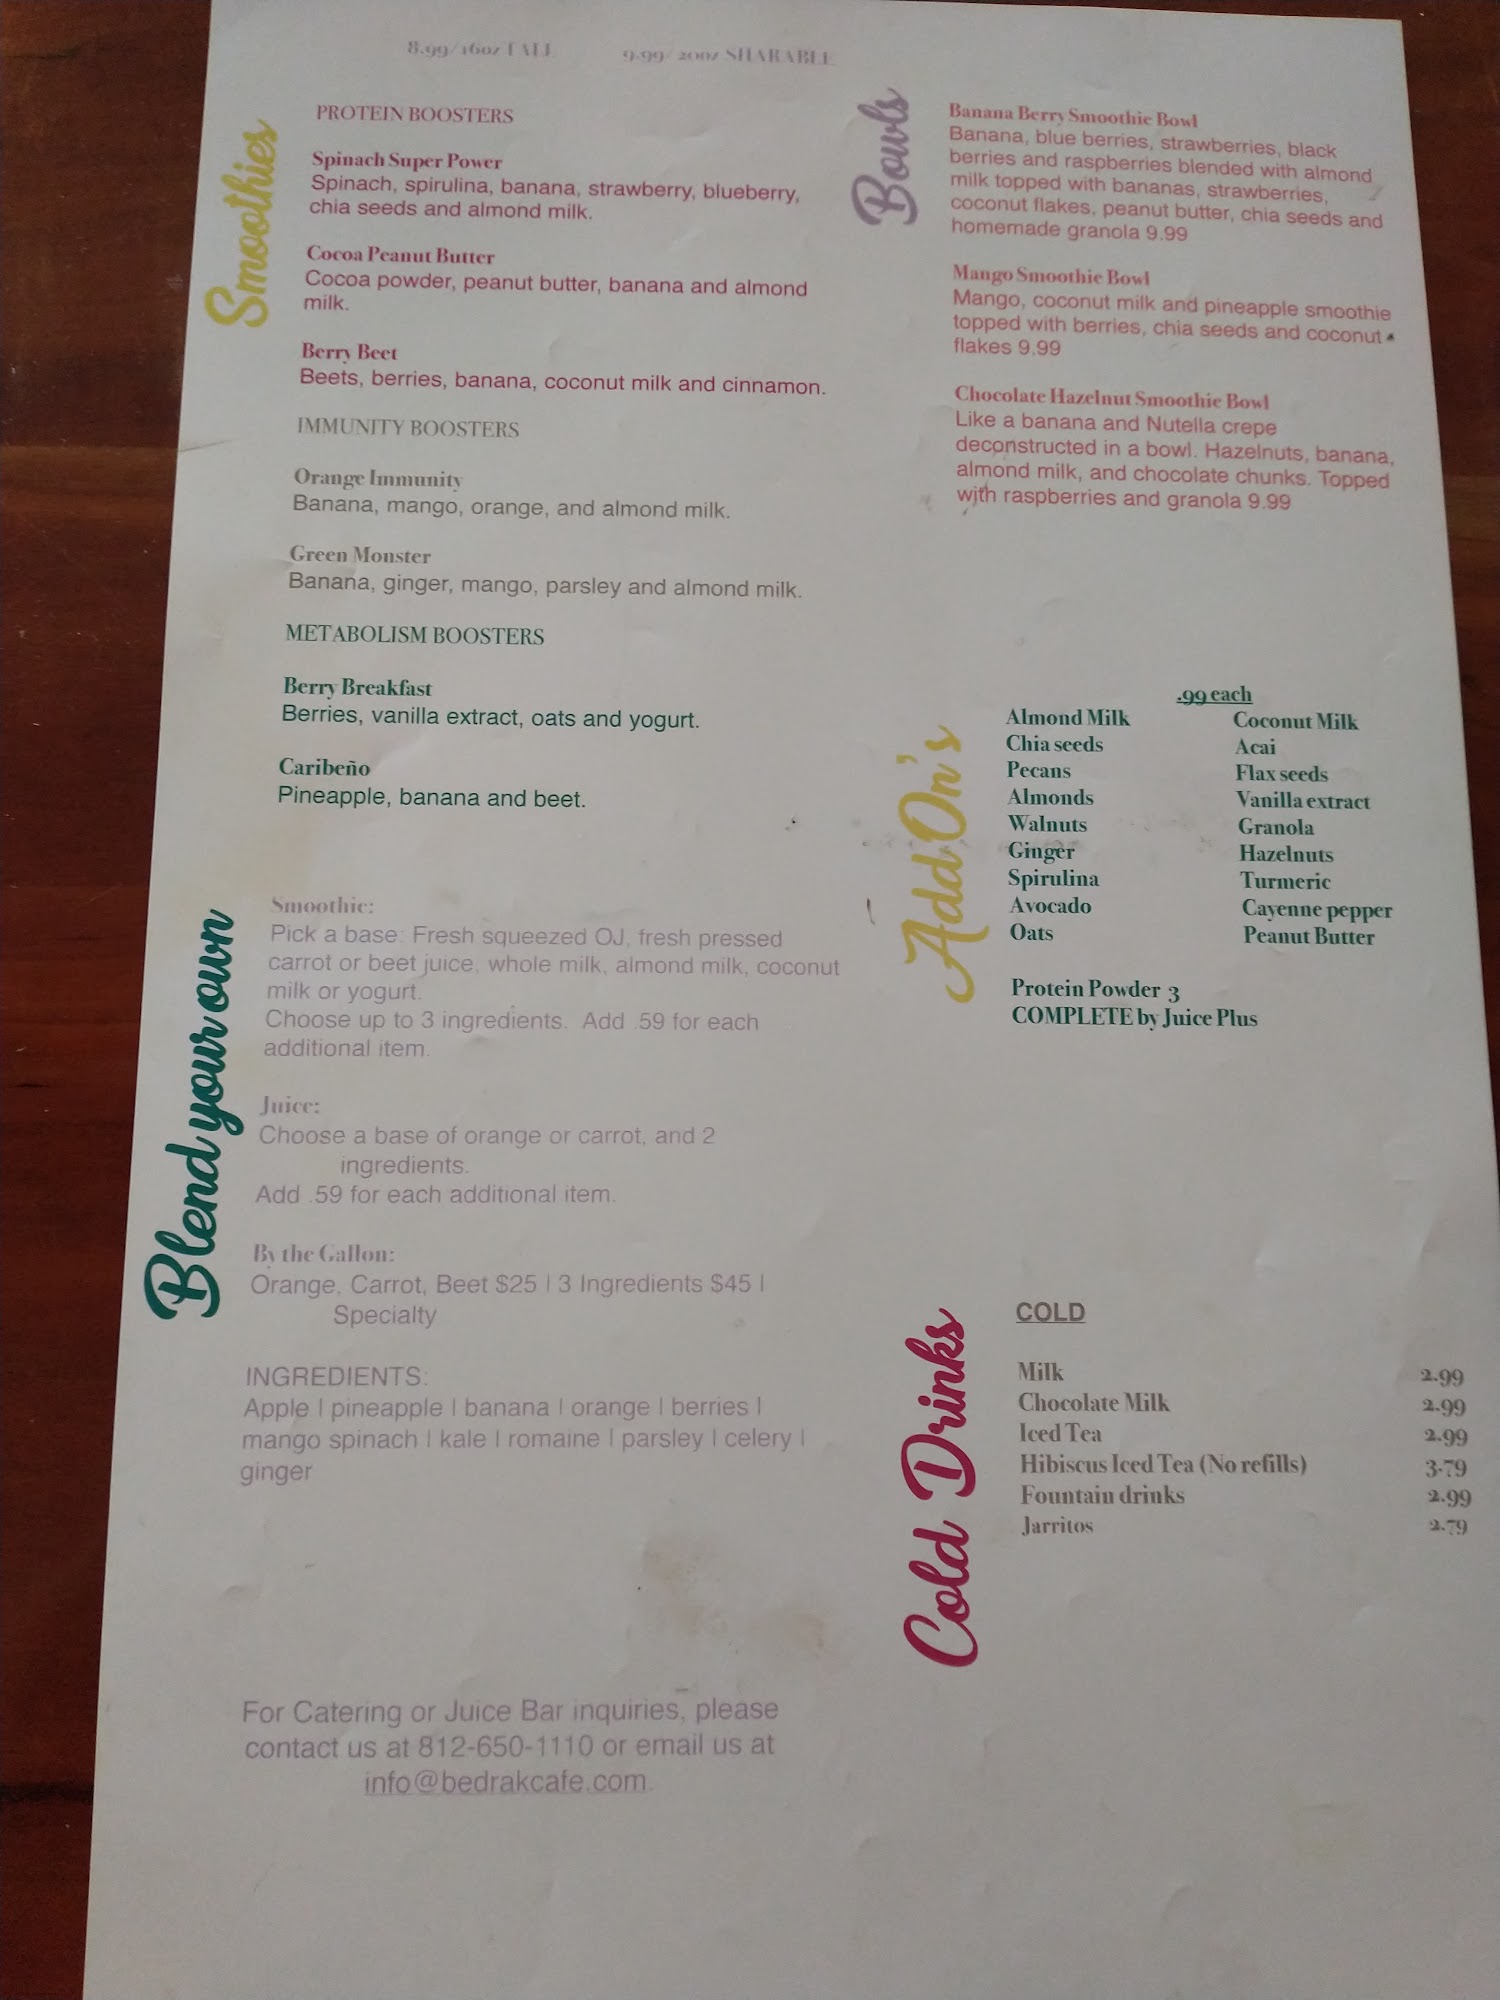 8.99/16oz TALL 9.99/20oz SHARABLE
Smoothies
PROTEIN BOOSTERS
Spinach Super Power
Spinach, spirulina, banana, strawberry, blueberry,
chia seeds and almond milk.
Cocoa Peanut Butter
Cocoa powder, peanut butter, banana and almond
milk.
Berry Beet
Beets, berries, banana, coconut milk and cinnamon.
IMMUNITY BOOSTERS
Orange Immunity
Banana, mango, orange, and almond milk.
Green Monster
Banana, ginger, mango, parsley and almond milk.
METABOLISM BOOSTERS
Berry Breakfast
Berries, vanilla extract, oats and yogurt.
Caribeño
Pineapple, banana and beet.
Blend your own
Smoothie:
Pick a base: Fresh squeezed OJ, fresh pressed
carrot or beet juice, whole milk, almond milk, coconut
milk or yogurt.
Choose up to 3 ingredients. Add .59 for each
additional item.
Juice:
Choose a base of orange or carrot, and 2
ingredients.
Add .59 for each additional item.
By the Gallon:
Orange, Carrot, Beet $25 | 3 Ingredients $45 |
Specialty
INGREDIENTS:
Apple | pineapple | banana | orange | berries |
mango spinach | kale | romaine | parsley | celery |
ginger
For Catering or Juice Bar inquiries, please
contact us at 812-650-1110 or email us at
info@bedrakcafe.com.
Bowls
Banana Berry Smoothie Bowl
Banana, blue berries, strawberries, black
berries and raspberries blended with almond
milk topped with bananas, strawberries,
coconut flakes, peanut butter, chia seeds and
homemade granola 9.99
Mango Smoothie Bowl
Mango, coconut milk and pineapple smoothie
topped with berries, chia seeds and coconut
flakes 9.99
Chocolate Hazelnut Smoothie Bowl
Like a banana and Nutella crepe
deconstructed in a bowl. Hazelnuts, banana,
almond milk, and chocolate chunks. Topped
with raspberries and granola 9.99
Add On's
.99 each
Almond Milk Coconut Milk
Chia seeds Acai
Pecans Flax seeds
Almonds Vanilla extract
Walnuts Granola
Ginger Hazelnuts
Spirulina Turmeric
Avocado Cayenne pepper
Oats Peanut Butter
Protein Powder 3
COMPLETE by Juice Plus
Cold Drinks
COLD
Milk 2.99
Chocolate Milk 2.99
Iced Tea 2.99
Hibiscus Iced Tea (No refills) 3.79
Fountain drinks 2.99
Jarritos 2.79